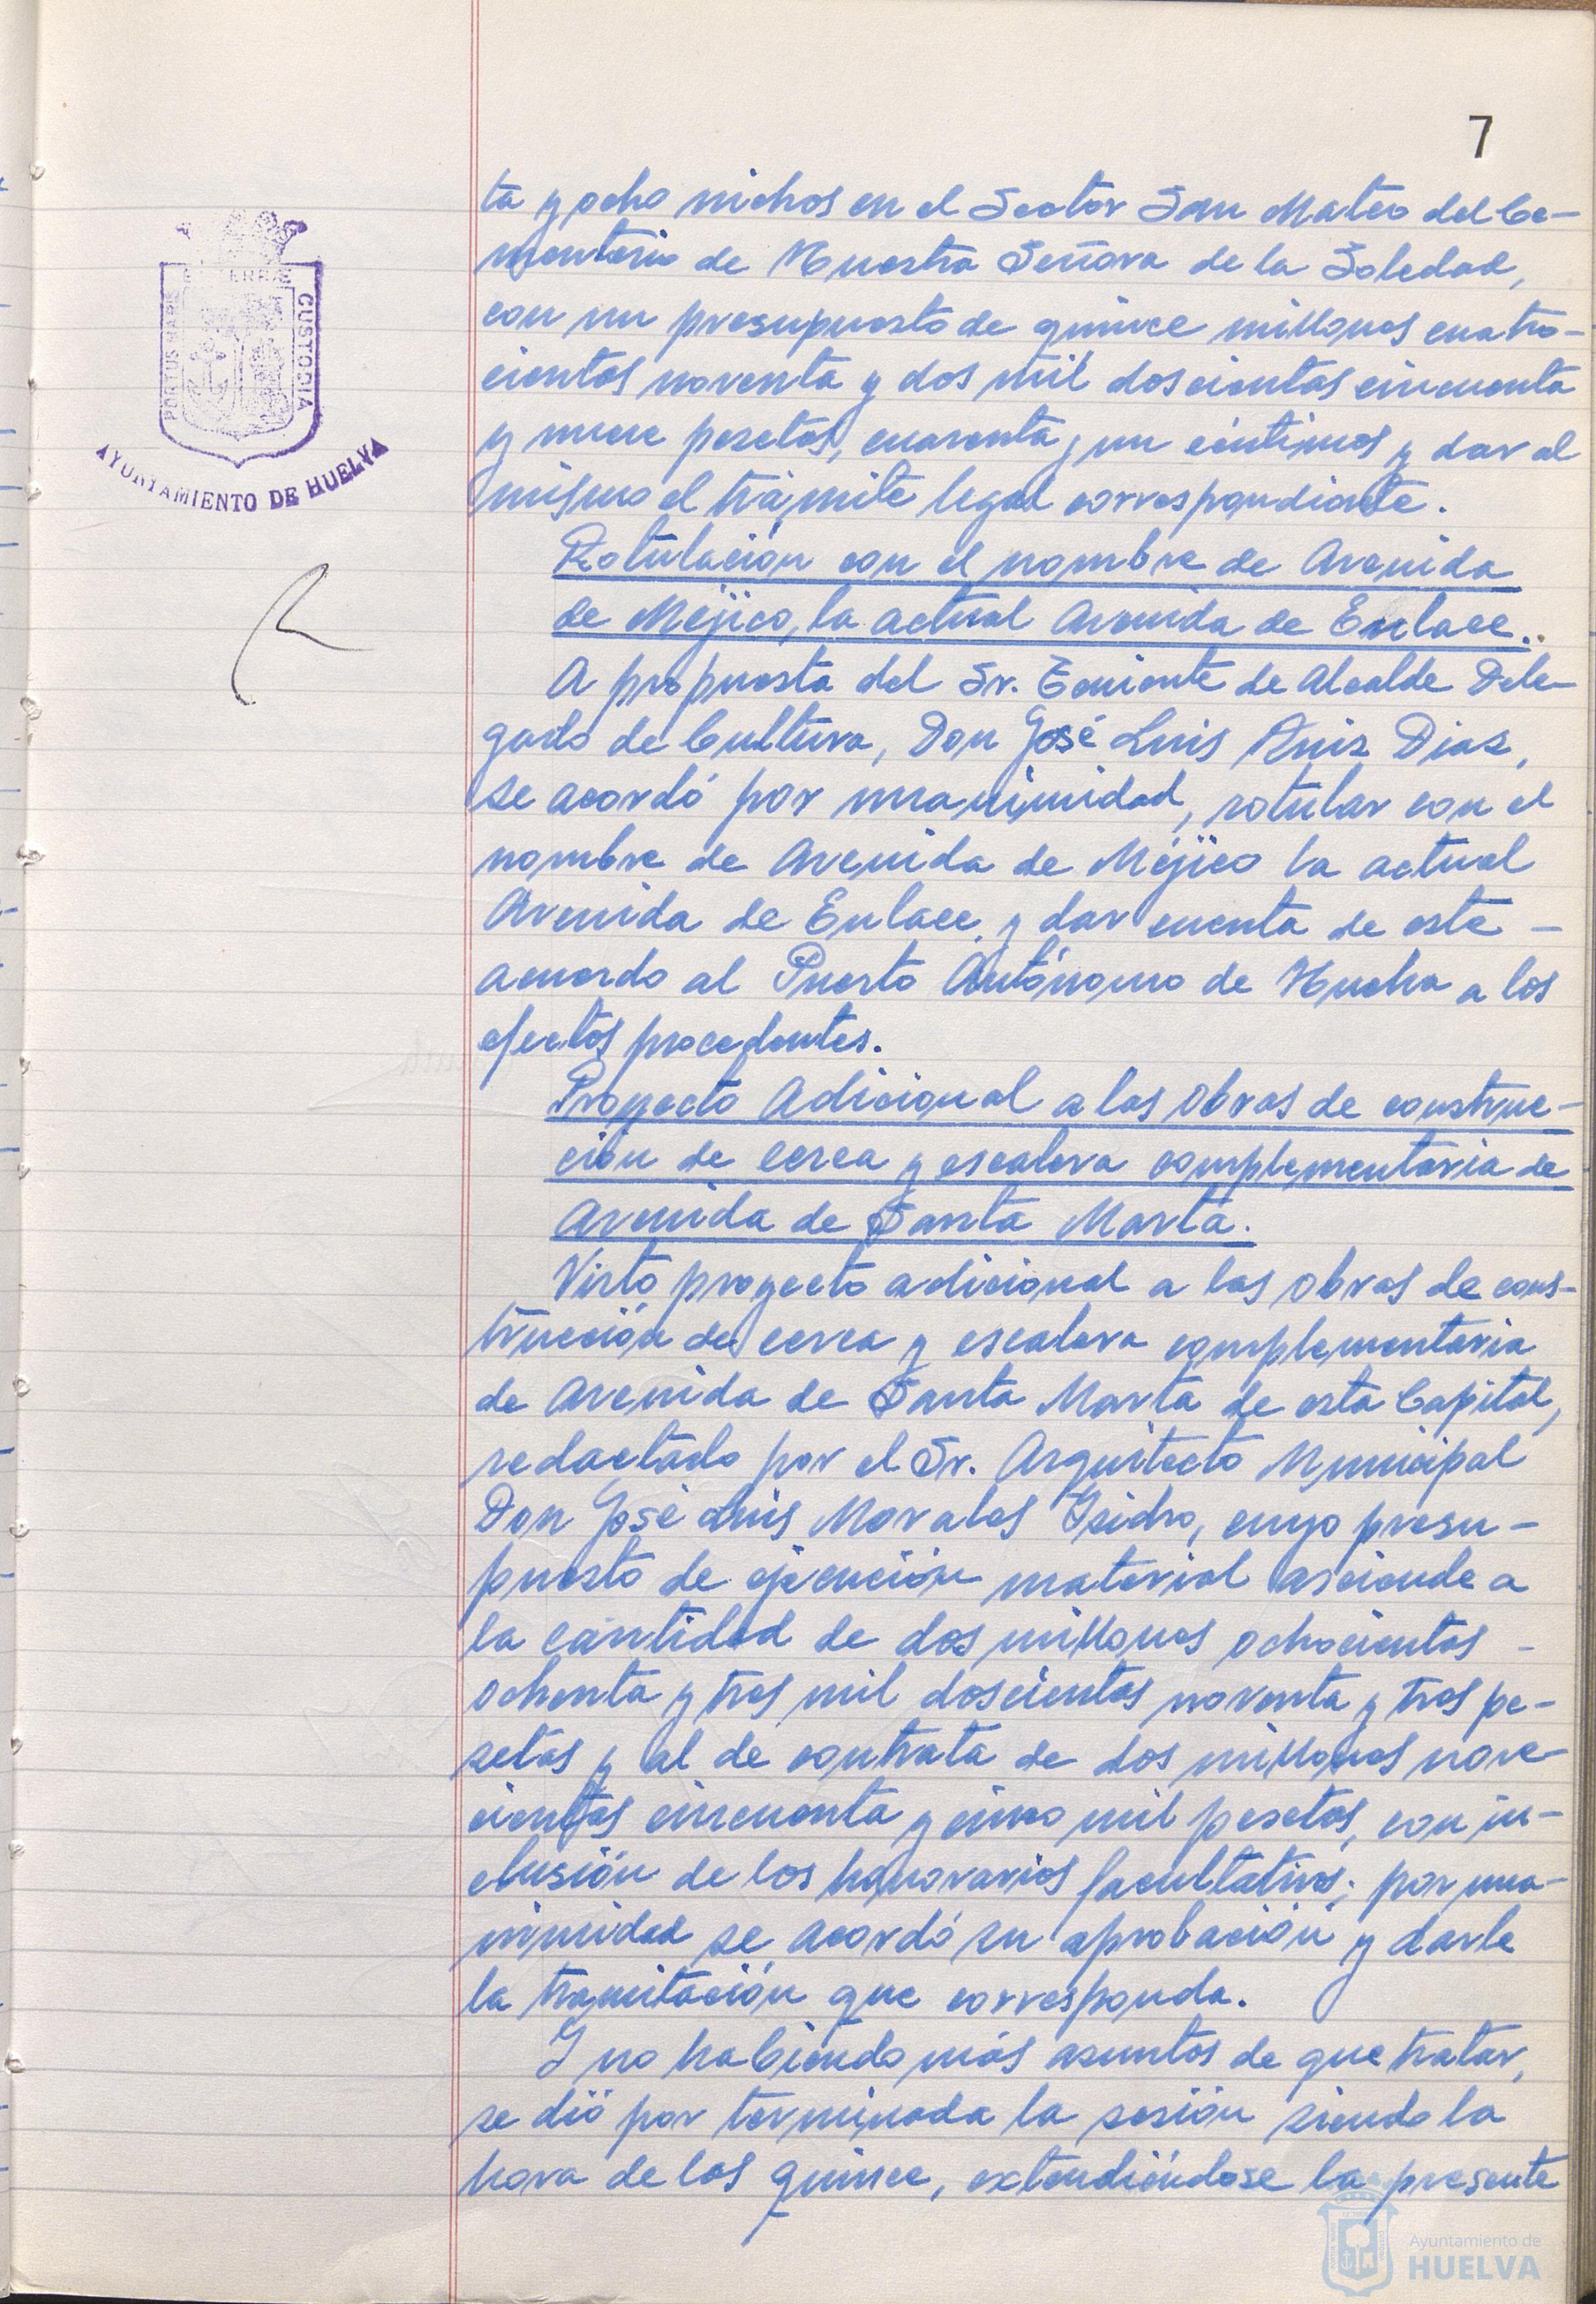 7
ta y ocho nichos en el Sector San Mateo del Ce-
menterio de Nuestra Señora de la Soledad,
con un presupuesto de quince millones cuatro-
cientas noventa y dos mil doscientas cincuenta
y nueve pesetas, cuarenta y un céntimos y dar al
mismo el trámite legal correspondiente.
Rotulación con el nombre de Avenida
de Méjico, la actual Avenida de Enlace..
A propuesta del Sr. Teniente de Alcalde Dele-
gado de Cultura, Don José Luis Ruiz Diaz,
se acordó por unanimidad, rotular con el
nombre de Avenida de Méjico la actual
Avenida de Enlace, y dar cuenta de este -
acuerdo al Puerto Autónomo de Huelva a los
efectos procedentes.
Proyecto Adicional a las obras de construc-
ción de cerca y escalera complementaria de
Avenida de Santa Marta.
Visto proyecto adicional a las obras de cons-
trucción de cerca y escalera complementaria
de Avenida de Santa Marta de esta Capital,
redactado por el Sr. Arquitecto Municipal
Don José Luis Morales Isidro, cuyo presu-
puesto de ejecución material asciende a
la cantidad de dos millones ochocientas -
ochenta y tres mil doscientas noventa y tres pe-
setas y al de contrata de dos millones nove-
cientas cincuenta y cinco mil pesetas, con in-
clusión de los honorarios facultativos; por una-
nimidad se acordó su aprobación y darle
la tramitación que corresponda.
Y no habiendo más asuntos de que tratar,
se dió por terminada la sesión siendo la
hora de las quince, extendiéndose la presente
PORTUS MARIS
ET TERRÆ
CUSTODIA
AYUNTAMIENTO DE HUELVA
Ayuntamiento de
HUELVA